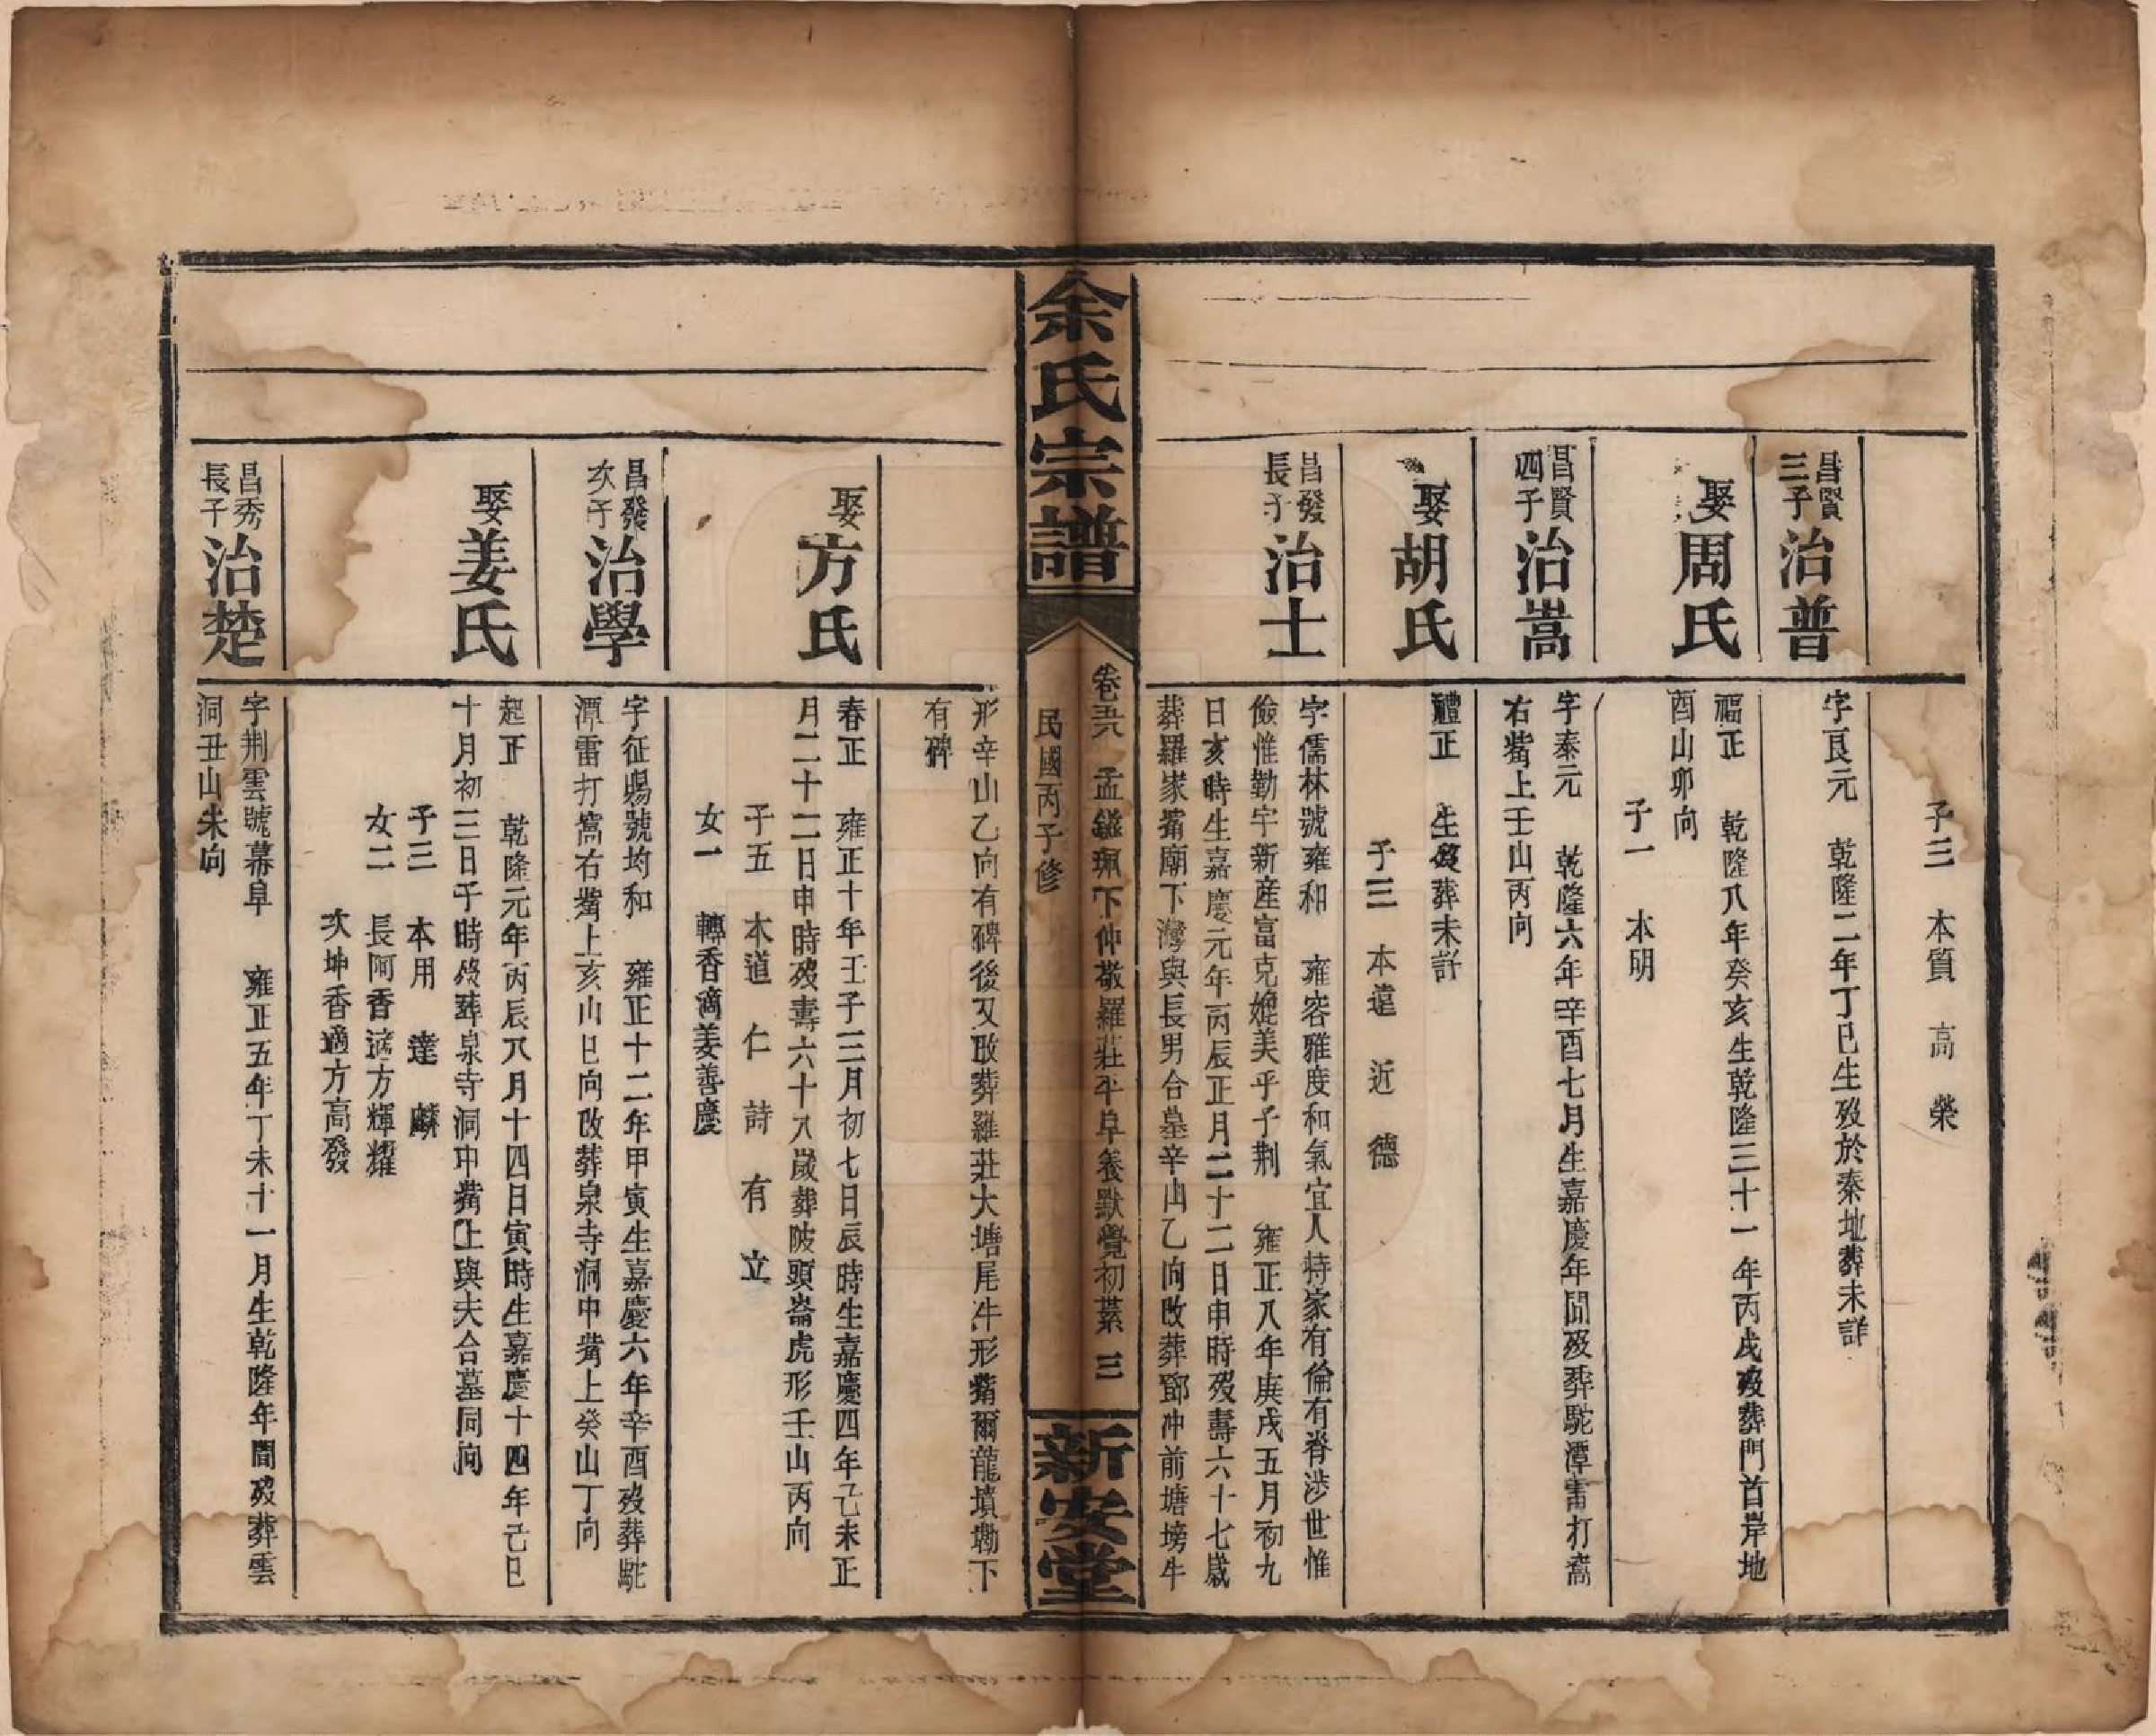 子三　本質　高　榮
昌賢
三子
治普
字艮元　乾隆二年丁巳生歿於秦地葬未詳
娶周氏
福正　乾隆八年癸亥生乾隆三十一年丙戌歿葬門首岸地
酉山卯向
子一　本明
昌賢
四子
治嵩
字泰元　乾隆六年辛酉七月生嘉慶年間歿葬駝潭雷打窩
右觜上壬山丙向
娶胡氏
體正　生歿葬未詳
子三　本遠　近　德
昌發
長子
治士
字儒林號雍和　雍容雅度和氣宜人持家有倫有脊涉世惟
儉惟勤宇新產富克媲美乎子荆　雍正八年庚戌五月初九
日亥時生嘉慶元年丙辰正月二十二日申時歿壽六十七歲
葬羅家觜廟下灣與長男合墓辛山乙向改葬鄧冲前塘塝牛
余氏宗譜
卷五六　孟鎡珮下仲敬羅莊平阜養默覺初纂　三
民國丙子修
新安堂
形辛山乙向有碑後又改葬羅莊大塘尾牛形觜爾龍墳墈下
有碑
娶方氏
春正　雍正十年壬子三月初七日辰時生嘉慶四年己未正
月二十二日申時歿壽六十八歲葬陂頭崙虎形壬山丙向
子五　本道　仁　詩　有　立
女一　轉香適姜善慶
昌發
次子
治學
字征賜號均和　雍正十二年甲寅生嘉慶六年辛酉歿葬駝
潭雷打窩右觜上亥山巳向改葬泉寺洞中觜上癸山丁向
娶姜氏
起正　乾隆元年丙辰八月十四日寅時生嘉慶十四年己巳
十月初三日子時歿葬泉寺洞中觜上與夫合墓同向
子三　本用　達　麟
女二　長阿香適方輝耀
次坤香適方高發
昌秀
長子
治楚
字荆雲號幕阜　雍正五年丁未十一月生乾隆年間歿葬雲
洞丑山未向